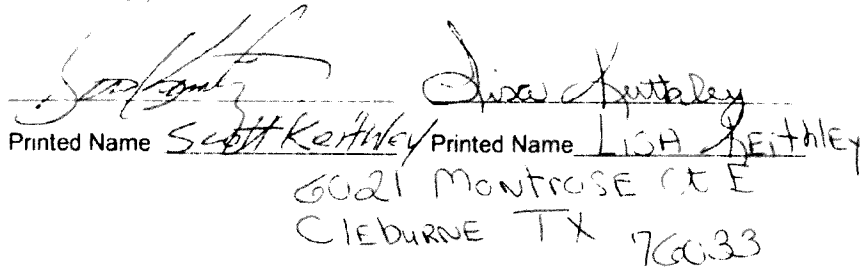 Lisa Keithley
Printed Name Scott Keithley Printed Name LISA KEITHLEY
6021 MONTROSE Ct E
CLEBURNE TX 76033